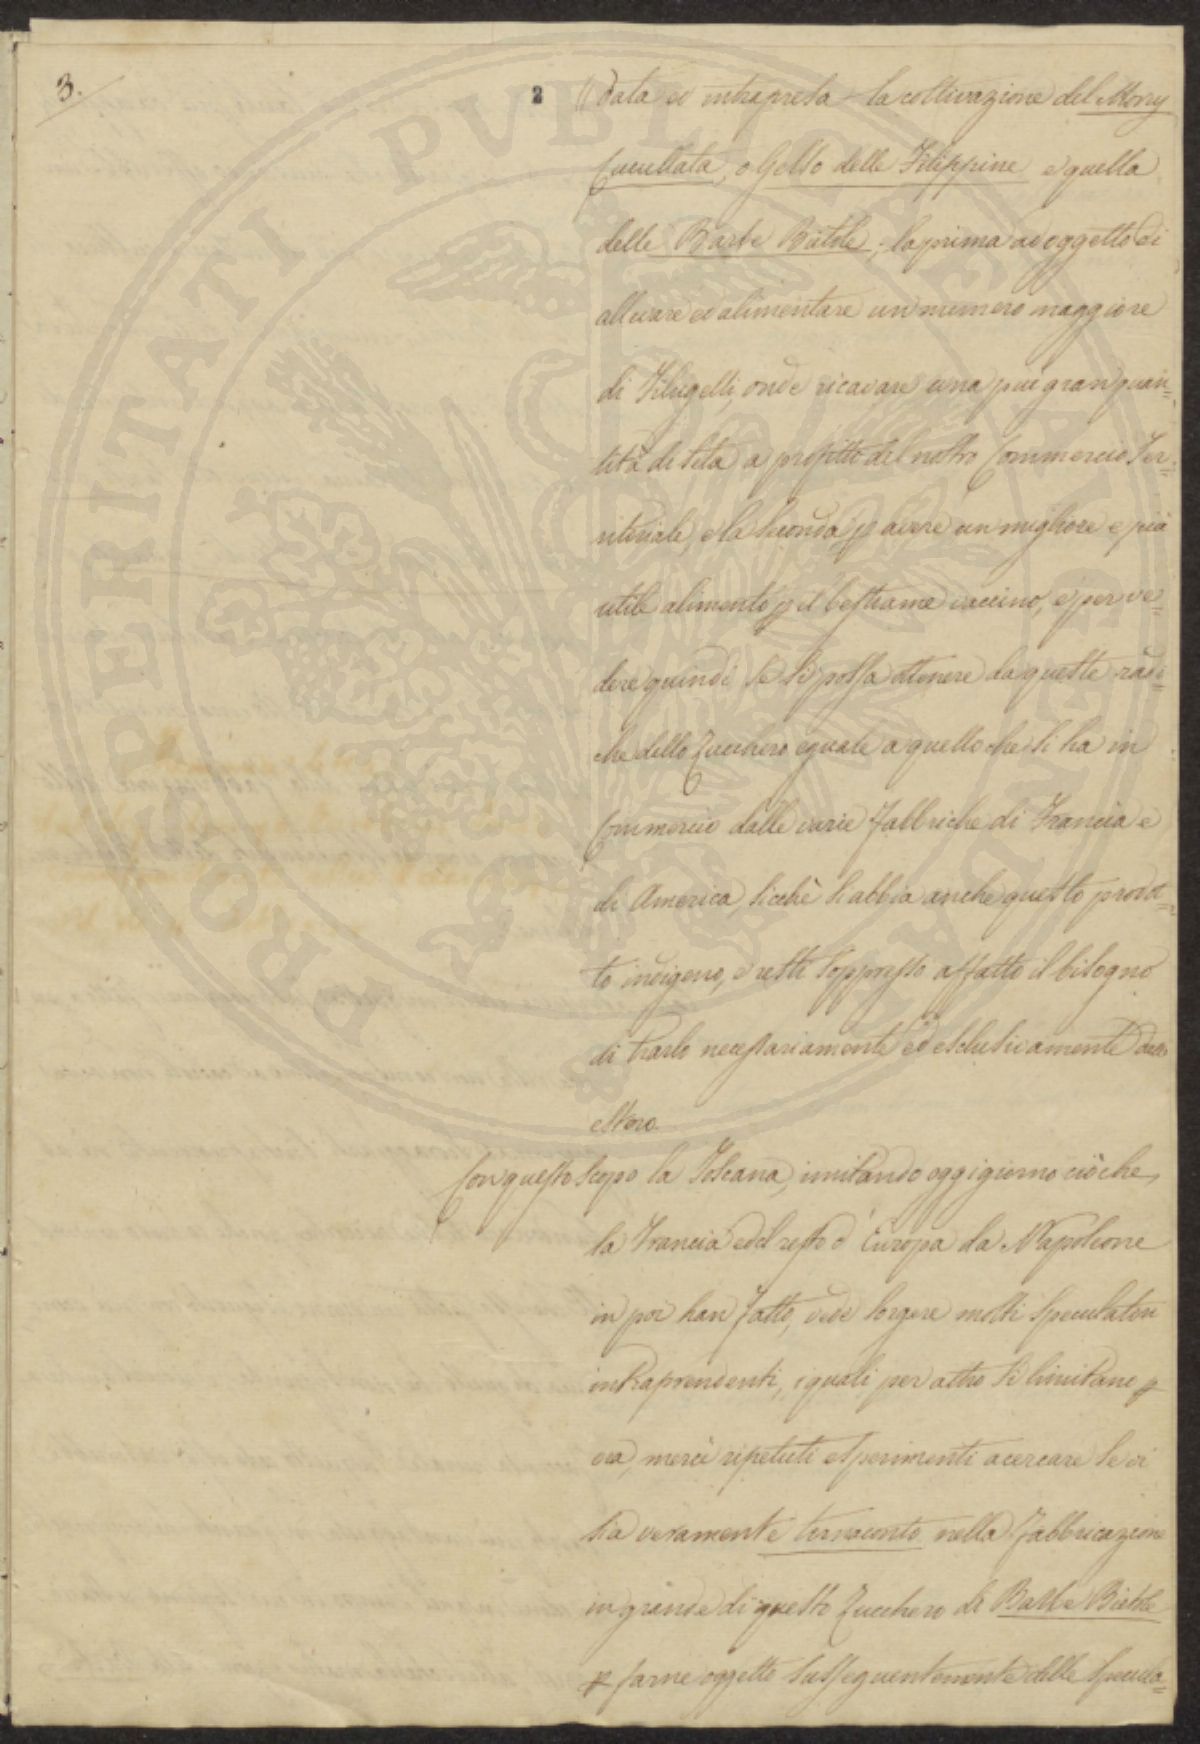 3.
2
data ed intrapresa la coltivazione del Mory
Cucullata, o Gelso delle Filippine e quella
delle Barbe Bietole; la prima ad oggetto di
allevare ed alimentare un numero maggiore
di Filugelli, onde ricavare una più gran quan=
tità di seta a profitto del nostro Commercio Ter=
ritoriale, e la seconda p avere un migliore e più
utile alimento p il bestiame vaccino, e per ve=
dere quindi se si possa ottenere da queste radi=
che dello Zucchero eguale a quello che si ha in
Commercio dalle varie fabbriche di Francia e
di America, sicchè si abbia anche questo prodot=
to indigeno, e resti soppresso affatto il bisogno
di trarlo necessariamente ed esclusivamente dall'
estero.
Con questo scopo la Toscana, imitando oggigiorno ciò che
la Francia ed il resto d'Europa da Napoleone
in poi han fatto, vede sorgere molti speculatori
intraprendenti, i quali per altro si limitano p
ora, mercè ripetuti esperimenti a cercare se vi
sia veramente tornaconto nella fabbricazione
in grande di questo Zucchero di Barbe Bietole
p farne oggetto susseguentemente delle specula=
PROSPERITATI PUBLICAE AUGENDAE